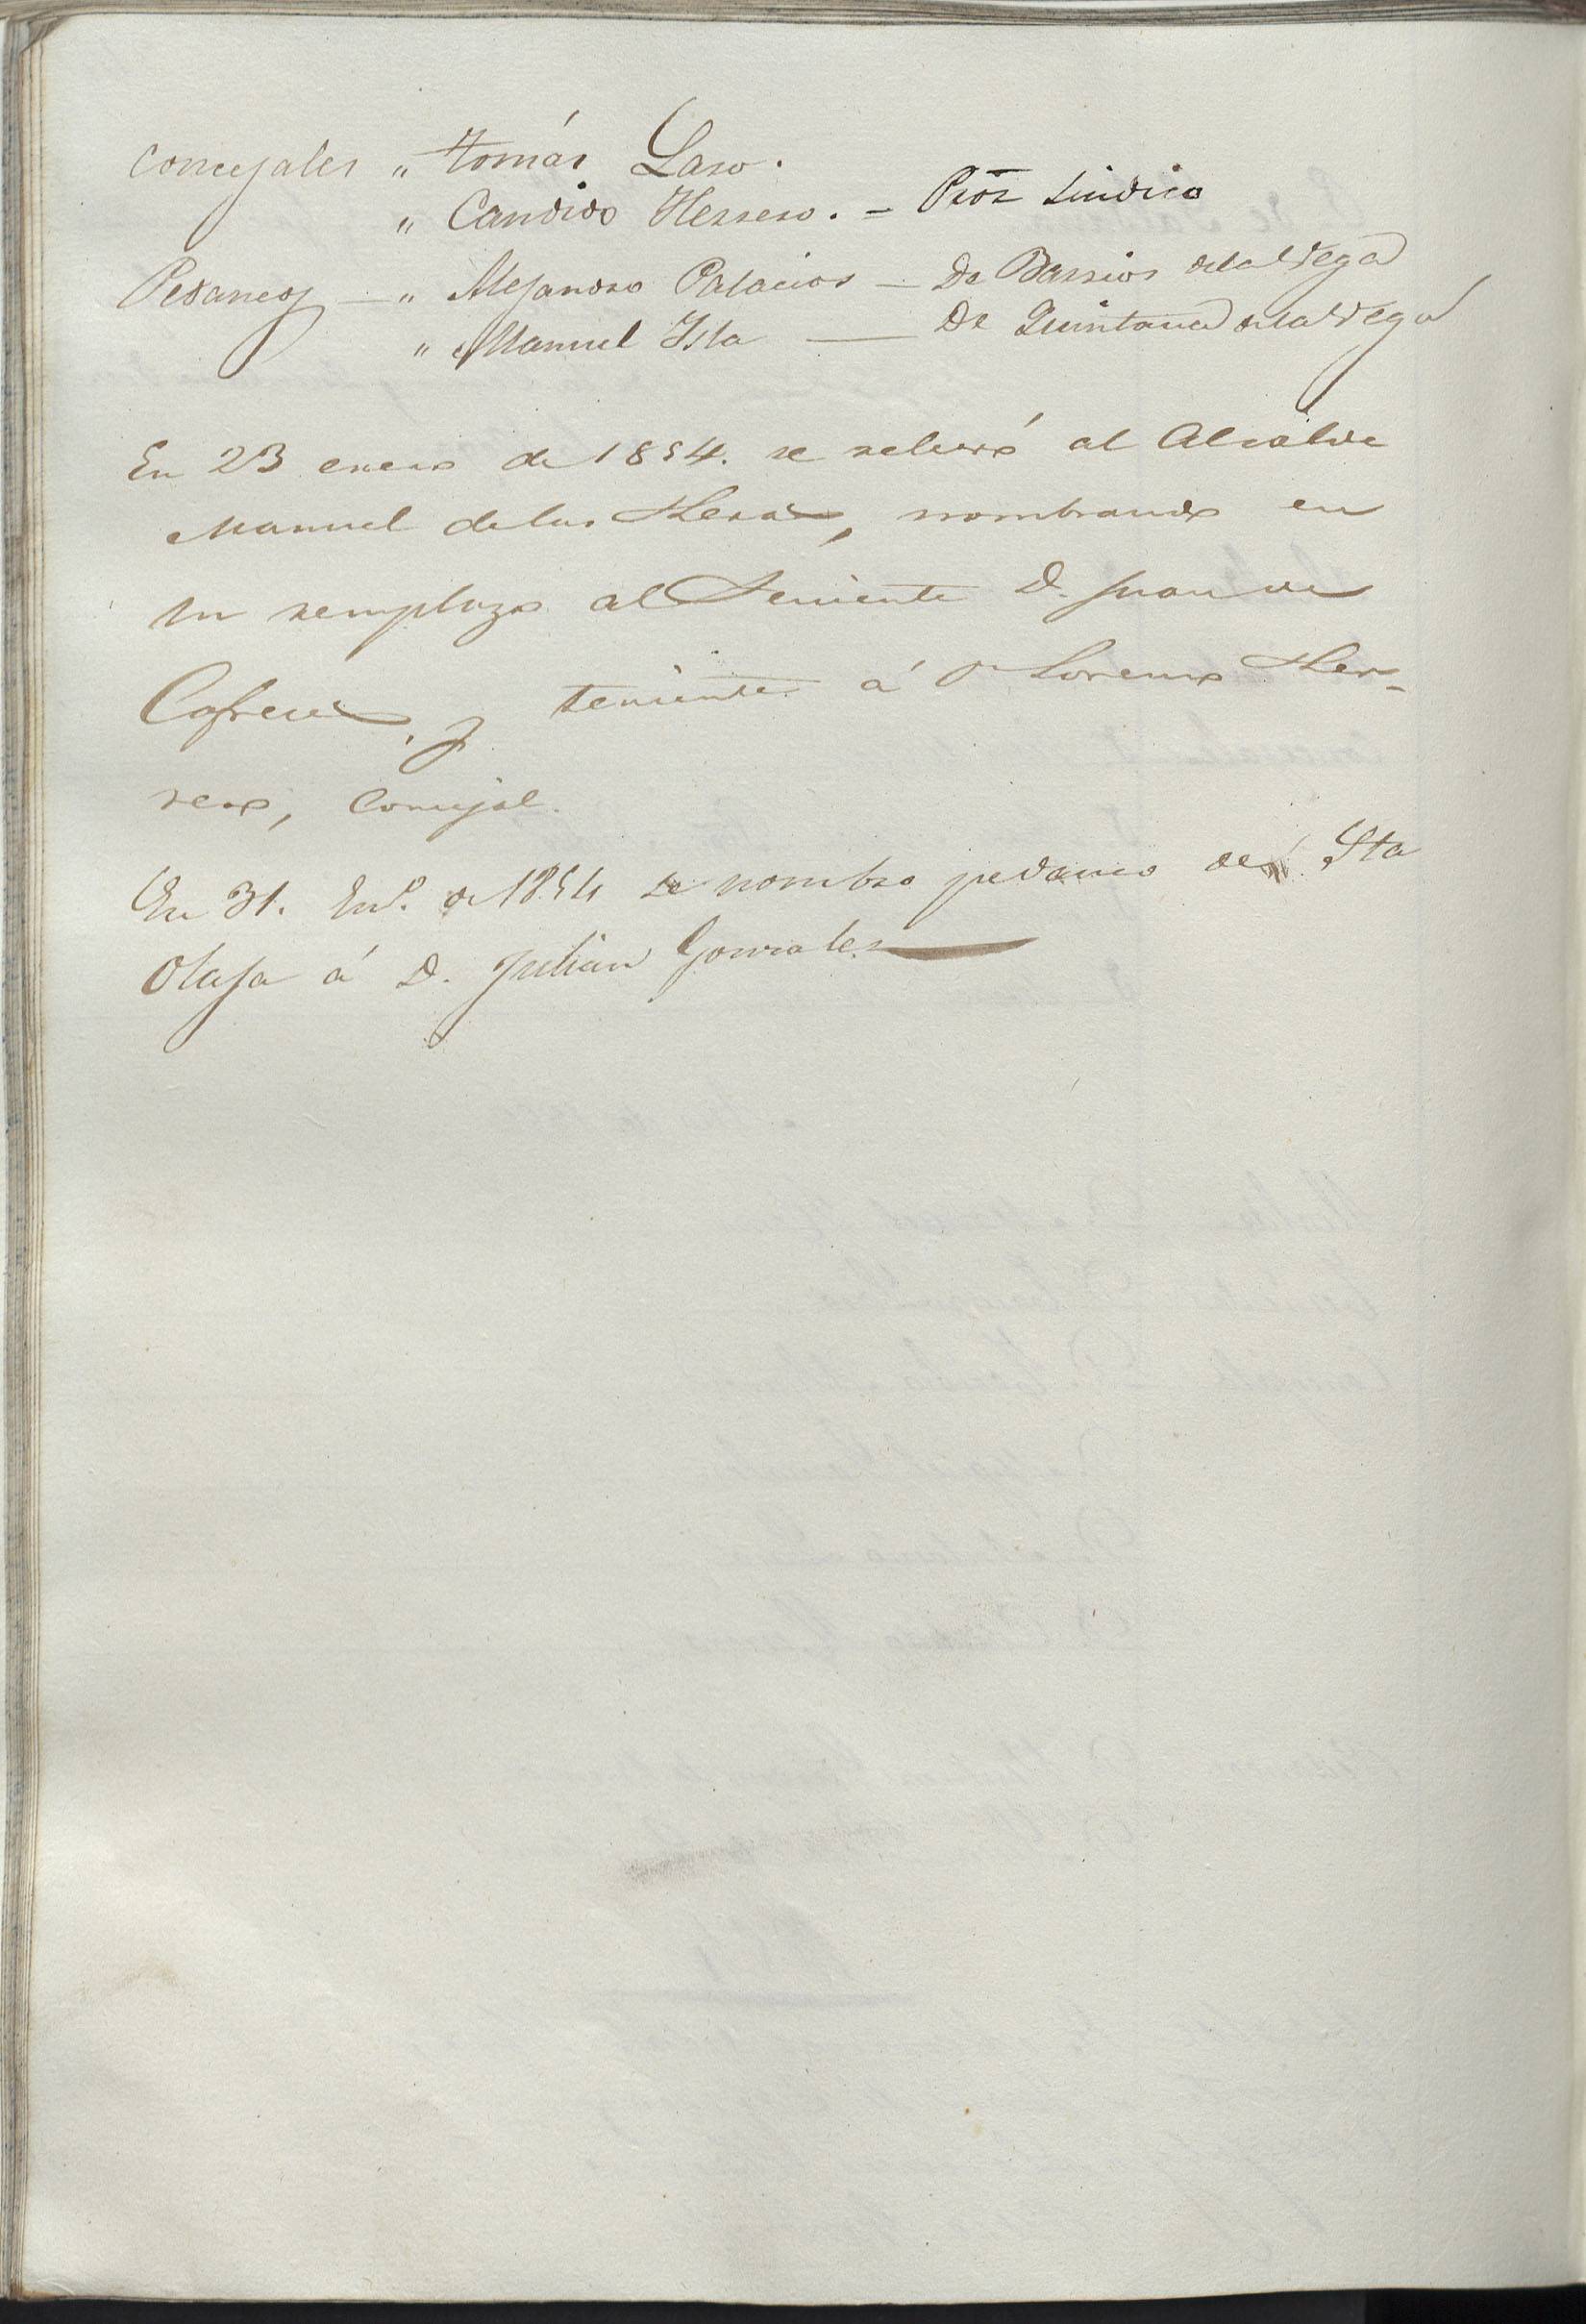 Concejales " Tomás Laso.
" Candido Herrero. - Pror Sindico
Pedaneos - " Alejandro Palacios - De Barrios dela Vega
" Manuel Isla - De Quintana dela Vega
En 23 enero de 1854. se relevó al Alcalde
Manuel de las Heras, nombrando en
su remplazo al Teniente D. Juan de
Cofreces, y teniente á Dn Lorenzo Her-
rero, Concejal.
En 31. Eno. de 1854 se nombro pedaneo de Sta
Olaja á D. Julian Gonzalez